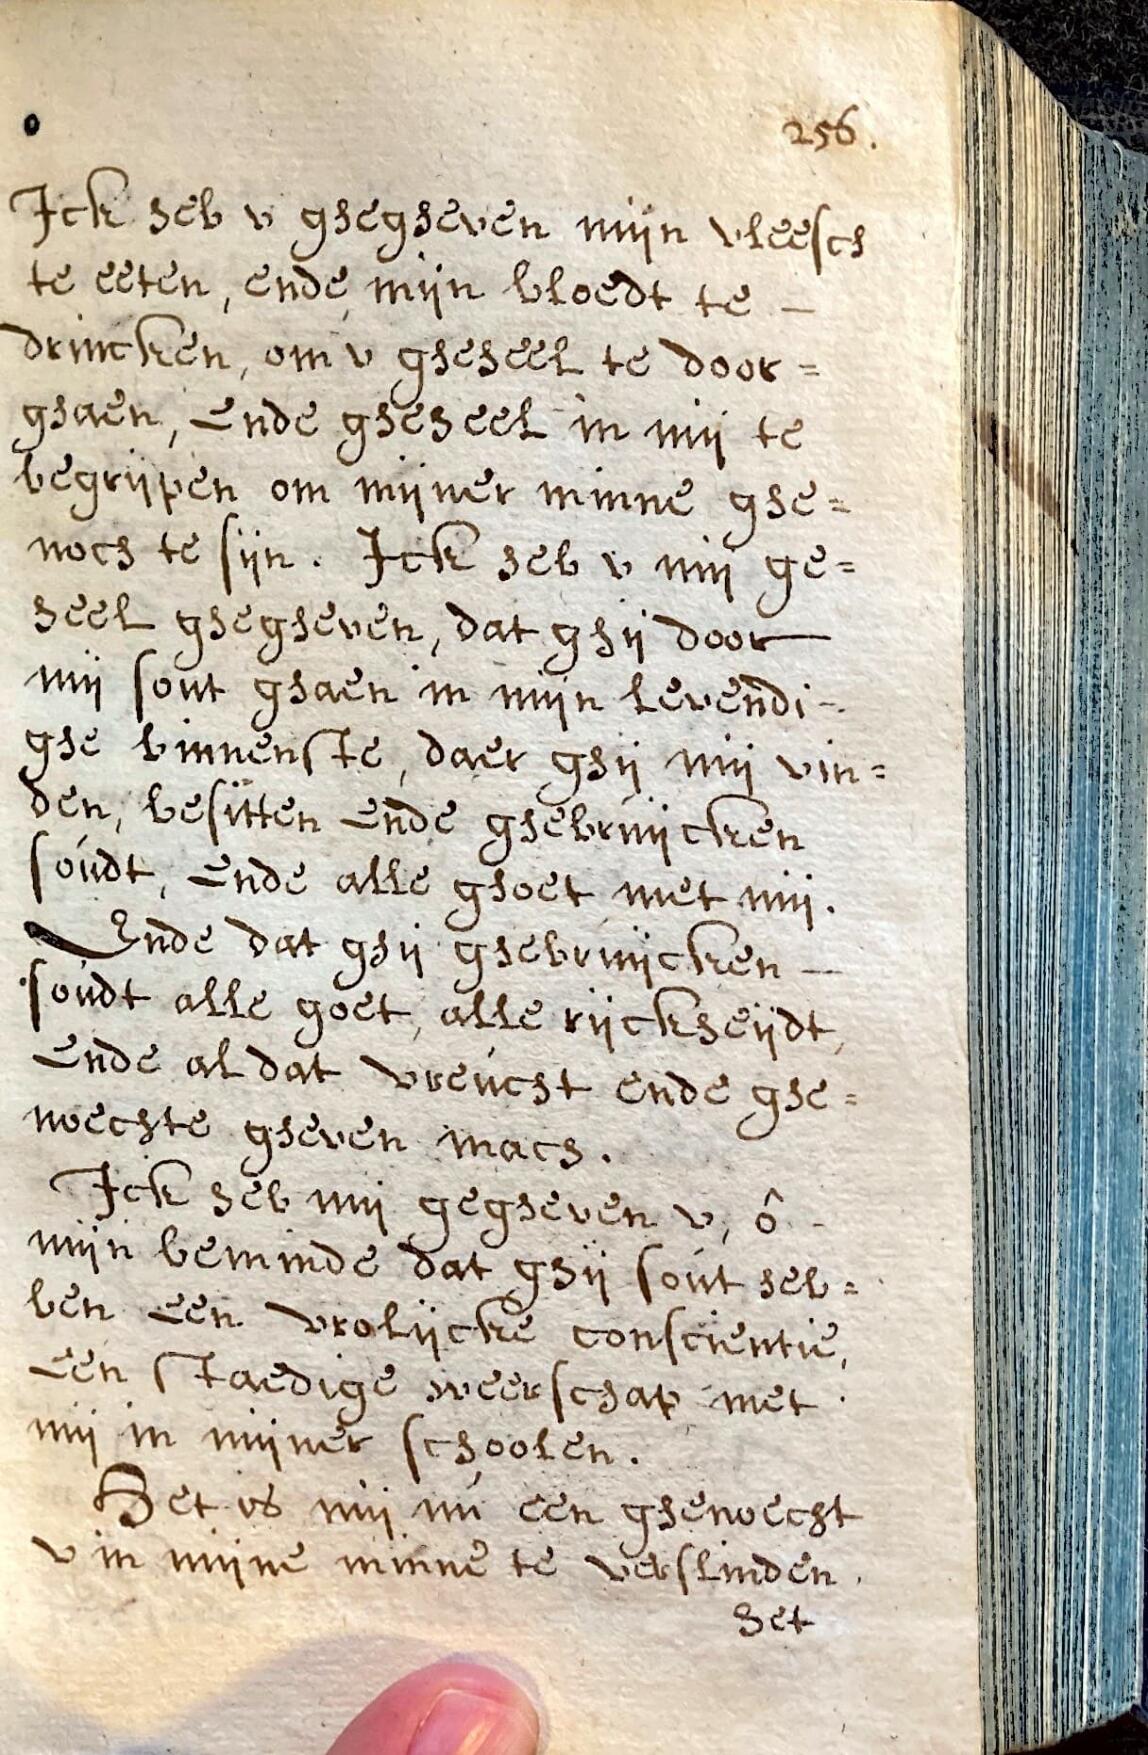 256.
Ick heb v ghegheven mijn vleesch
te eeten, ende mijn bloedt te –
drincken, om v gheheel te door=
ghaen, Ende gheheel in mij te
begrijpen om mijner minne ghe=
noch te sijn. Ick heb v mij ge=
heel ghegheven, dat ghij door
mij sout ghaen in mijn levendi-
ghe binnenste, daer ghij mij vin=
den, besitten Ende ghebruijcken
soudt, Ende alle ghoet met mij.
Ende dat ghij ghebruijcken –
soudt alle goet, alle rijckheijdt,
Ende al dat vreucht ende ghe=
noechte gheven mach.
Ick heb mij gegheven v, ô –
mijn beminde dat ghij sout heb=
ben Een vrolijcke conscientie,
Een staedige weerschap met
mij in mijner schoolen.
Het is mij nu een ghenoecht
v in mijne minne te verslinden.
het